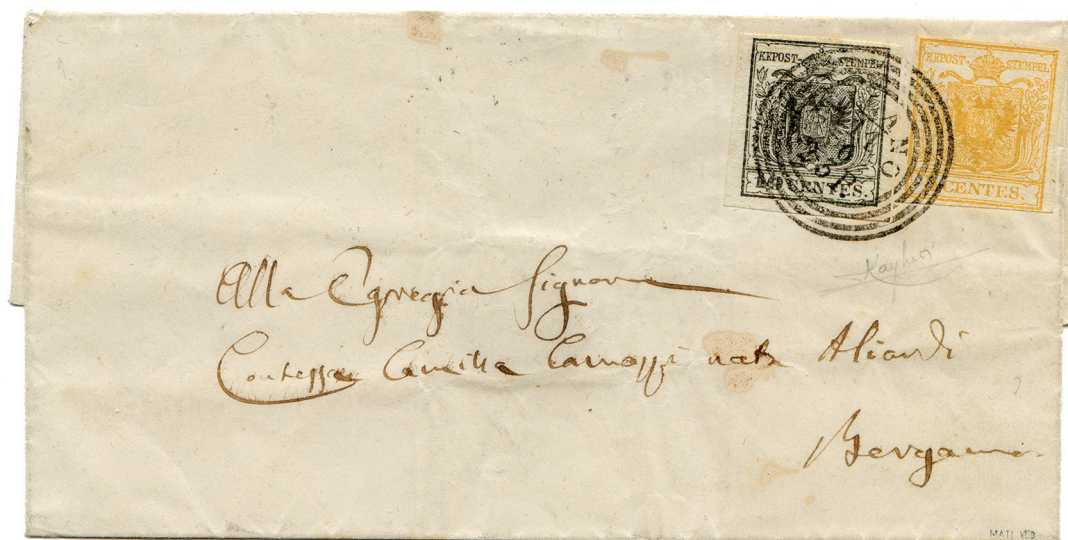 KKPOST-STEMPEL
10 CENTES.
KKPOST-STEMPEL
CENTES.
Alla Egregia Signora
Contessa Camilla Camozzi nata Aliardi
Bergamo